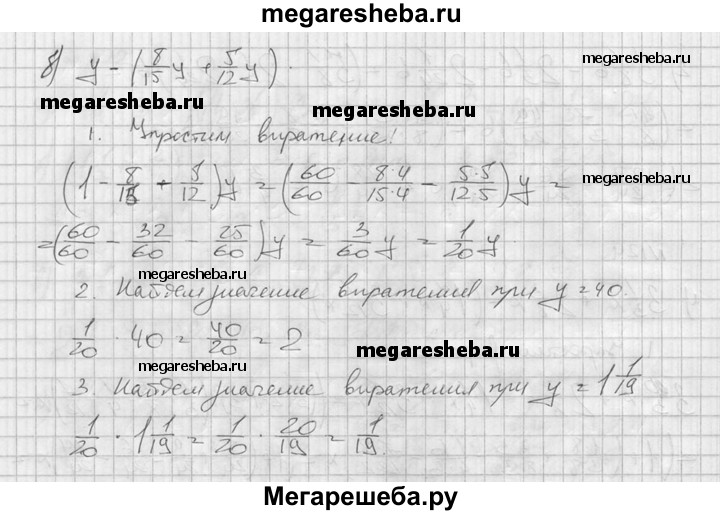 megaresheba.ru
б) y - (8/15 y + 5/12 y).
megaresheba.ru
megaresheba.ru
megaresheba.ru
1. Упростим выражение!
(1 - 8/15 - 5/12)y = (60/60 - 8·4/15·4 - 5·5/12·5)y =
megaresheba.ru
= (60/60 - 32/60 - 25/60)y = 3/60 y = 1/20 y
megaresheba.ru
2. Найдем значение выражения при y = 40.
1/20 · 40 = 40/20 = 2
megaresheba.ru
megaresheba.ru
3. Найдем значение выражения при y = 1 1/19
1/20 · 1 1/19 = 1/20 · 20/19 = 1/19.
megaresheba.ru
Мегарешеба.ру